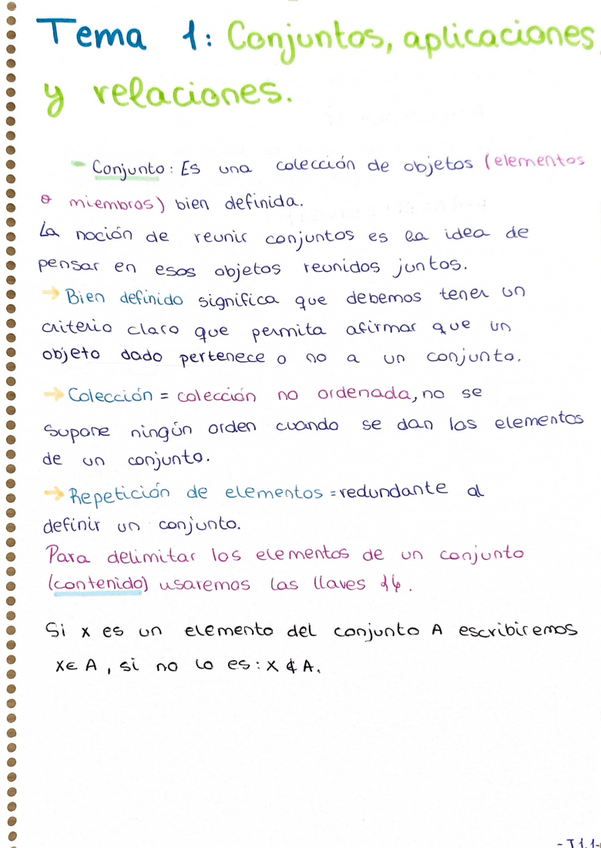 Tema 1: Conjuntos, aplicaciones
y relaciones.
- Conjunto: Es una colección de objetos (elementos
o miembros) bien definida.
La noción de reunir conjuntos es la idea de
pensar en esos objetos reunidos juntos.
→ Bien definido significa que debemos tener un
criterio claro que permita afirmar que un
objeto dado pertenece o no a un conjunto.
→ Colección = colección no ordenada, no se
supone ningún orden cuando se dan los elementos
de un conjunto.
→ Repetición de elementos = redundante al
definir un conjunto.
Para delimitar los elementos de un conjunto
(contenido) usaremos las llaves {}.
Si x es un elemento del conjunto A escribiremos
x∈A, si no lo es: x∉A.
- T1.1-